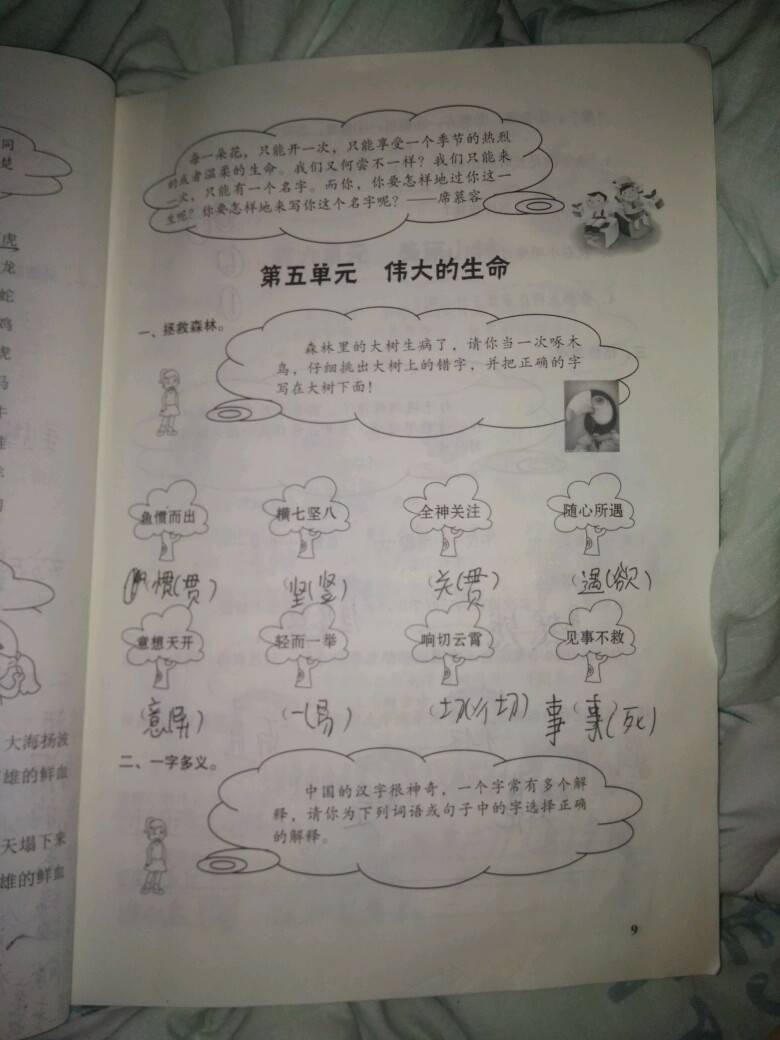 同
楚
虎
龙
蛇
鸡
虎
马
牛
大海扬波
雄的鲜血
天塌下来
雄的鲜血
每一朵花，只能开一次，只能享受一个季节的热烈
的或者温柔的生命。我们又何尝不一样？我们只能来
一次，只能有一个名字。而你，你要怎样地过你这一
生呢？你要怎样地来写你这个名字呢？——席慕容
第五单元 伟大的生命
一、拯救森林。
森林里的大树生病了，请你当一次啄木
鸟，仔细挑出大树上的错字，并把正确的字
写在大树下面！
鱼惯而出 横七坚八 全神关注 随心所遇
惯(贯) 坚(竖) 关(贯) (遇(欲)
意想天开 轻而一举 响切云霄 见事不救
(意异) (一(易) 事 事(死)
二、一字多义。
中国的汉字很神奇，一个字常有多个解
释，请你为下列词语或句子中的字选择正确
的解释。
9